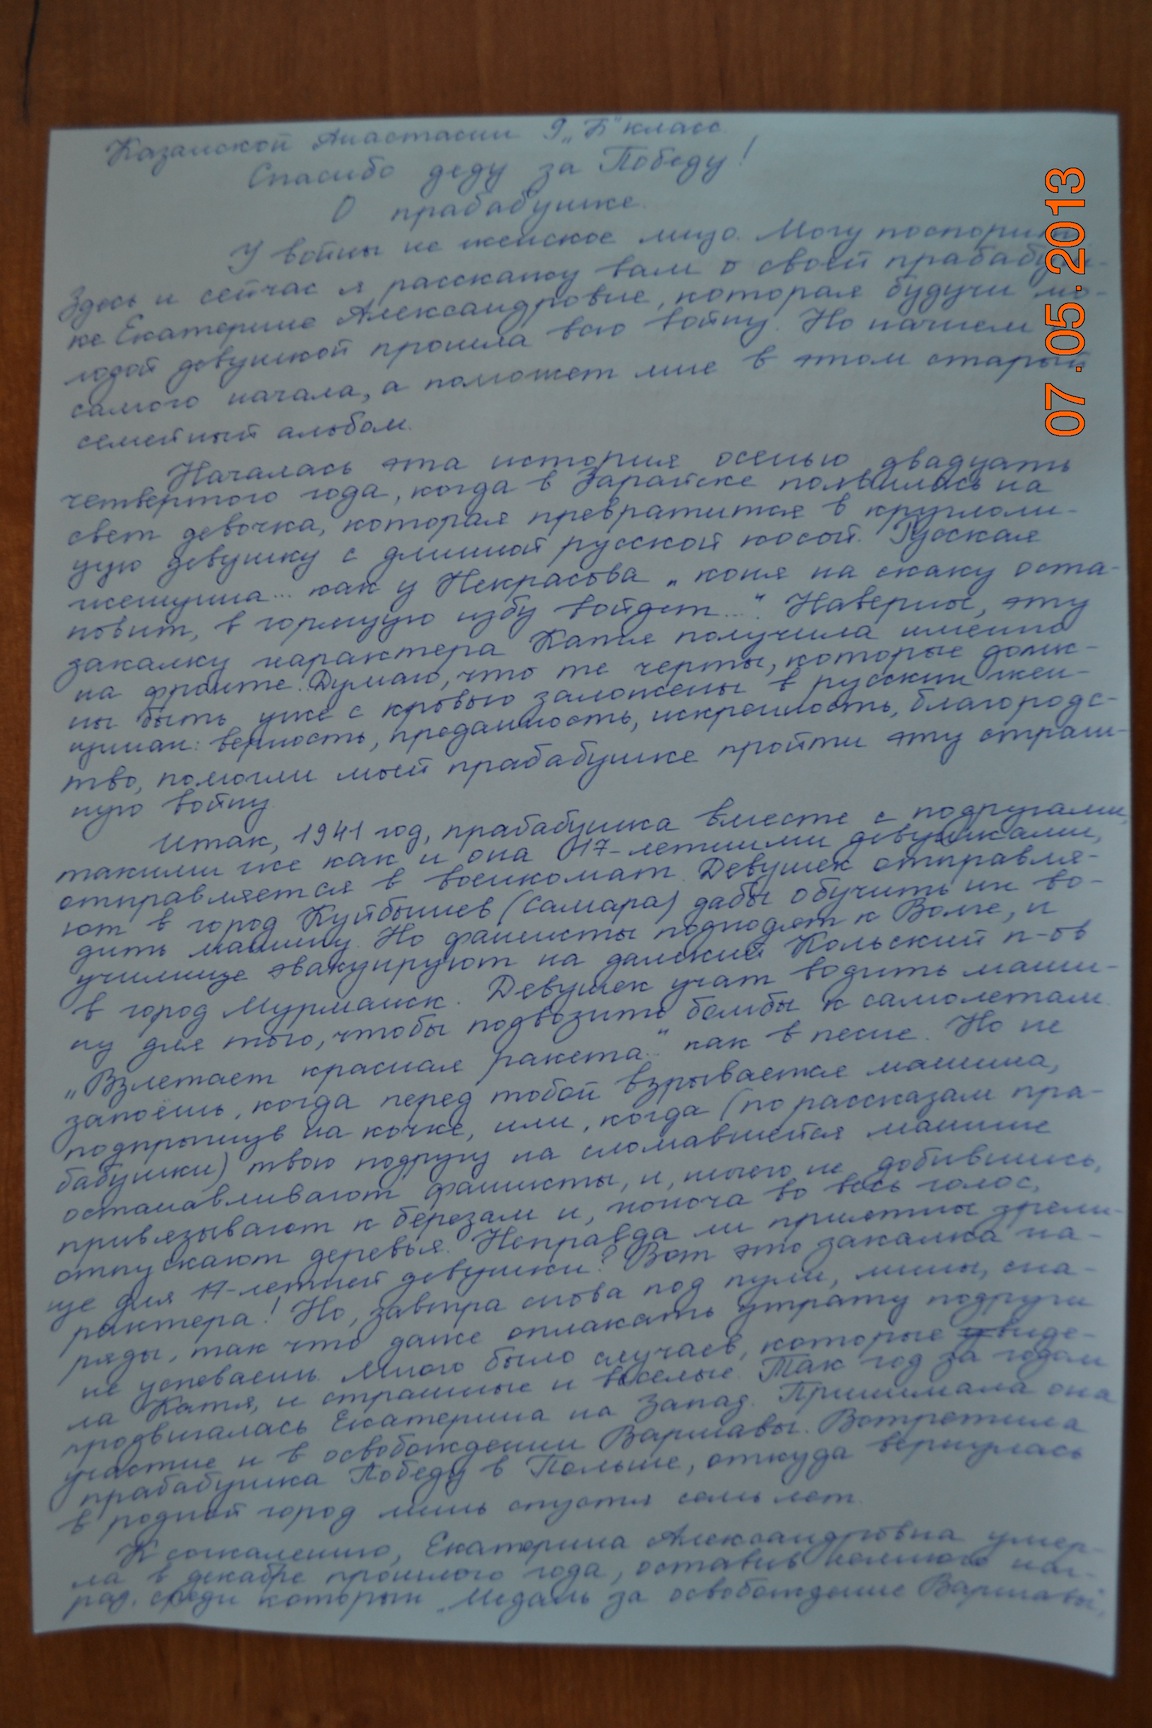 Казанской Анастасии 9 „Б" класс.
Спасибо деду за Победу!
О прабабушке.
У войны не женское лицо. Могу поспорить.
Здесь и сейчас я расскажу вам о своей прабабуш-
ке Екатерине Александровне, которая будучи мо-
лодой девушкой прошла всю войну. Но начнем
самого начала, а поможет мне в этом старый
семейный альбом.
Началась эта история осенью двадцать
четвертого года, когда в Зарайске появилась на
свет девочка, которая превратится в круглоли-
цую девушку с длинной русской косой. Русская
женщина... как у Некрасова „коня на скаку оста-
новит, в горящую избу войдет...". Наверное, эту
закалку характера Катя получила именно
на фронте. Думаю, что те черты, которые долж-
ны быть уже с кровью заложены в русских жен-
щинах: верность, преданность, искренность, благородс-
тво, помогли моей прабабушке пройти эту страш-
ную войну.
Итак, 1941 год, прабабушка вместе с подругами,
такими же как и она 17-летними девушками,
отправляется в военкомат. Девушек отправля-
ют в город Куйбышев (Самара) дабы обучить их во-
дить машину. Но фашисты подходят к Волге, и
училище эвакуируют на далекий Кольский п-ов
в город Мурманск. Девушек учат водить маши-
ну для того, чтобы подвозить бомбы к самолетам.
„Взлетает красная ракета..." как в песне. Но не
запоёшь, когда перед тобой взрывается машина,
подпрыгнув на кочке, или, когда (по рассказам пра-
бабушки) твою подругу на сломавшейся машине
останавливают фашисты, и, ничего не добившись,
привязывают к березам и, хохоча во весь голос,
отпускают деревья. Неправда ли приятны зрели-
ще для 17-летней девушки? Вот это закалка ха-
рактера! Но, завтра снова под пули, мины, сна-
ряды, так что даже оплакать утрату подруги
не успеваешь. Много было случаев, которые увиде-
ла Катя, и страшные и веселые. Так год за годом
продвигалась Екатерина на Запад. Принимала она
участие и в освобождении Варшавы. Встретила
прабабушка Победу в Польше, откуда вернулась
в родной город лишь спустя семь лет.
К сожалению, Екатерина Александровна умер-
ла в декабре прошлого года, оставив немного наг-
рад, среди которых „Медаль за освобождение Варшавы",
07.05.2013